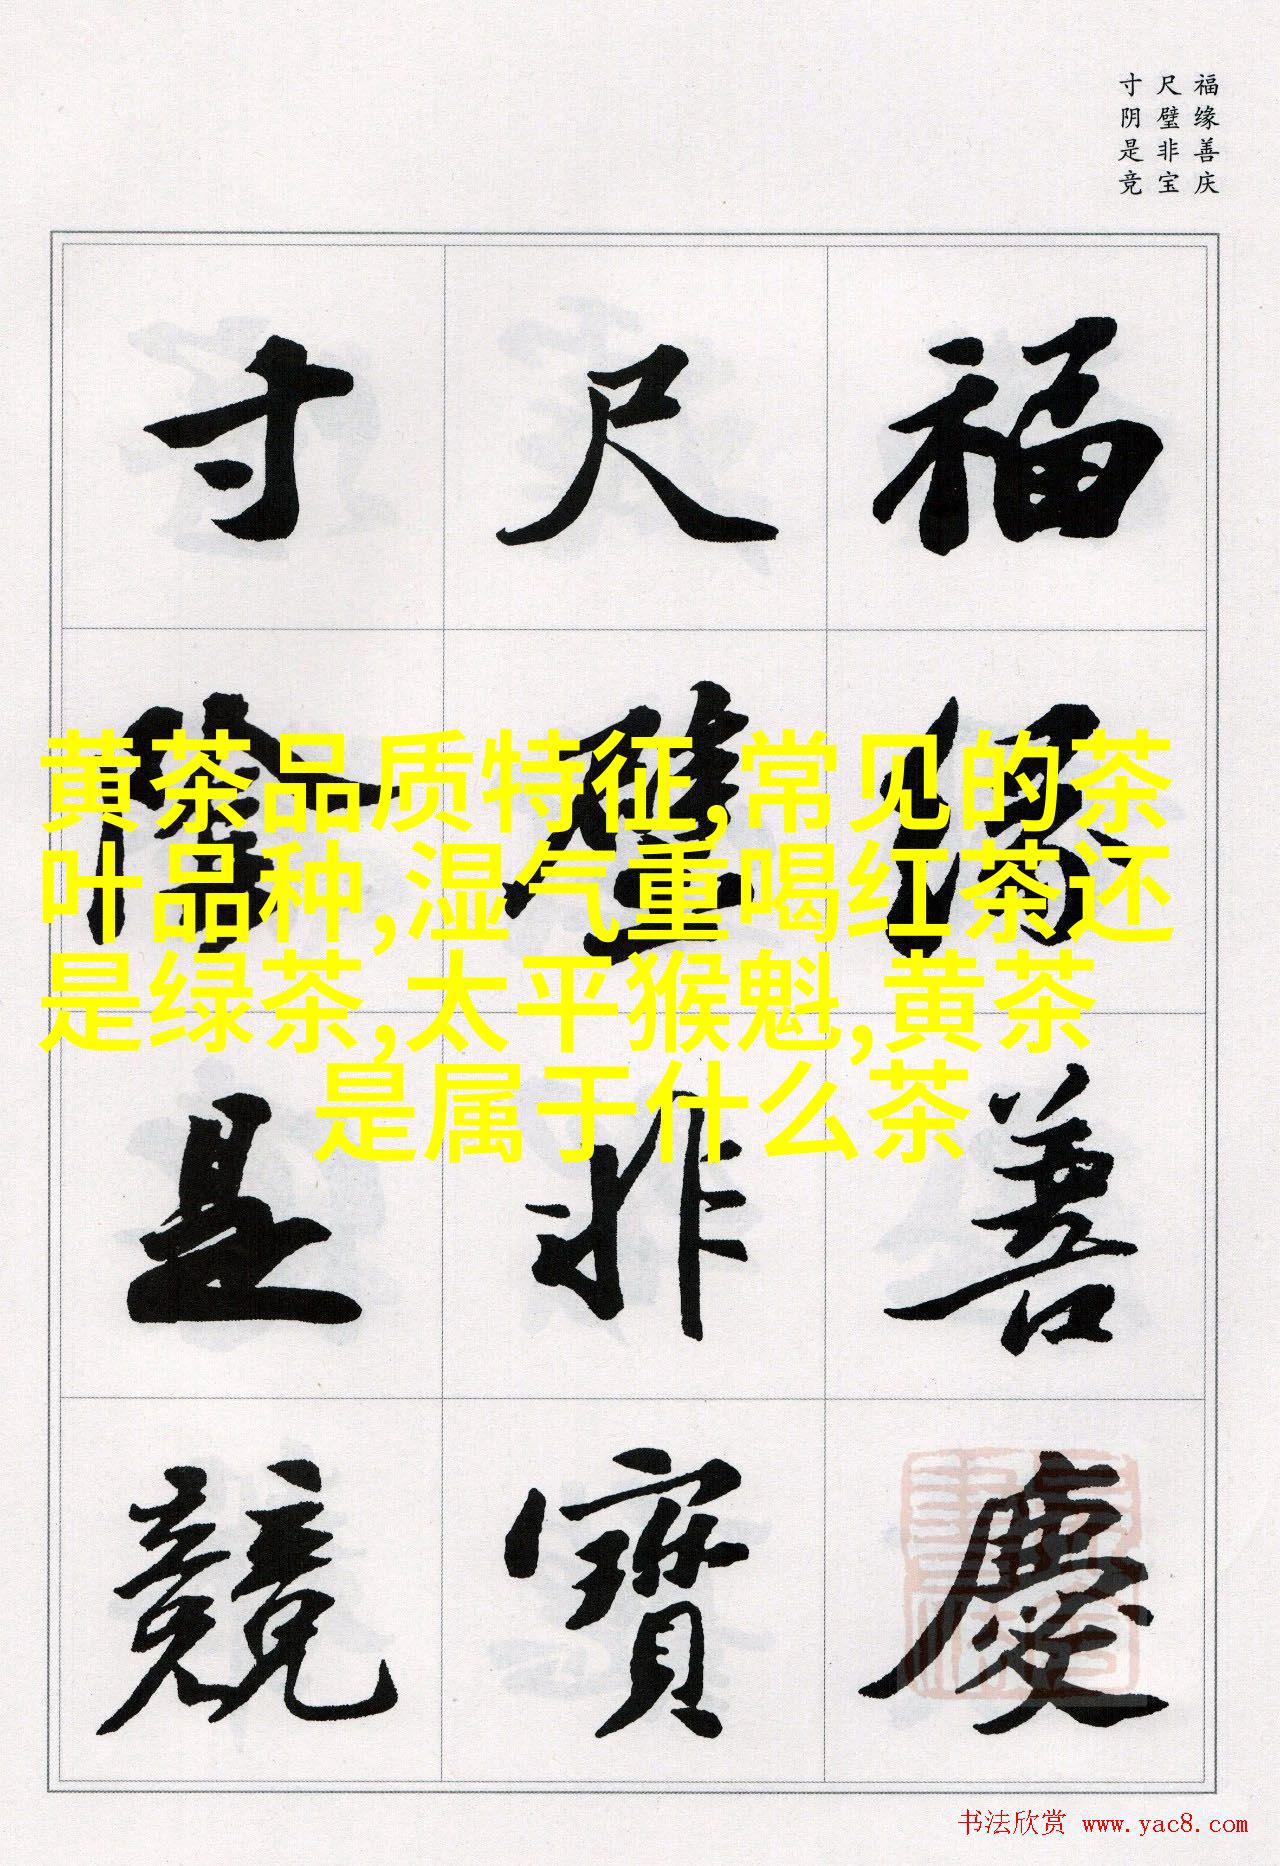 福缘善庆
尺璧非宝
寸阴是竞
福缘善慶
尺璧非寶
寸陰是競
黄茶品质特征,常见的茶
叶品种,湿气重喝红茶还
是绿茶,太平猴魁,黄茶
是属于什么茶
书法欣赏 www.yac8.com